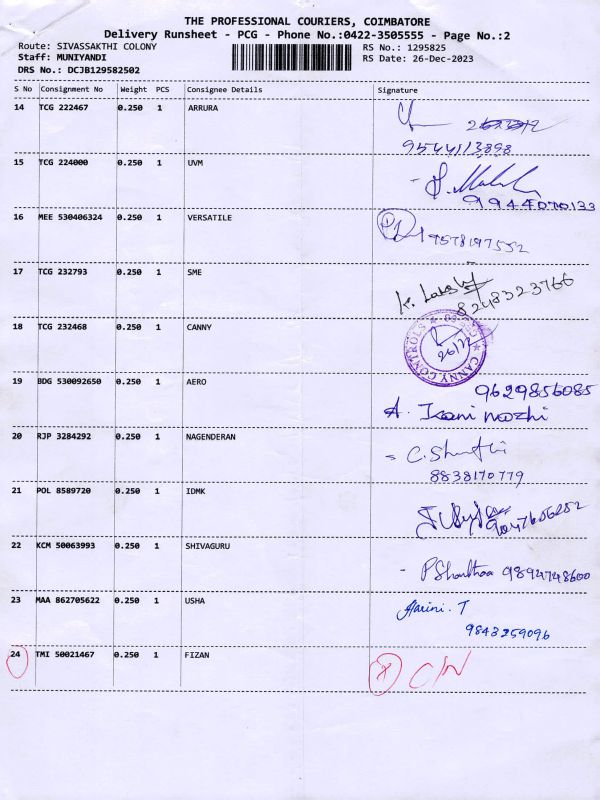 THE PROFESSIONAL COURIERS, COIMBATORE
Delivery Runsheet - PCG - Phone No.:0422-3505555 - Page No.:2
Route: SIVASSAKTHI COLONY RS No.: 1295825
Staff: MUNIYANDI RS Date: 26-Dec-2023
DRS No.: DCJB129582502
S No Consignment No Weight PCS Consignee Details Signature
14 TCG 222467 0.250 1 ARRURA
9544113898
15 TCG 224000 0.250 1 UVM
9944070133
16 MEE 530406324 0.250 1 VERSATILE
9578197552
17 TCG 232793 0.250 1 SME
8248323766
18 TCG 232468 0.250 1 CANNY
CANNY CONTROLS
26/12
19 BDG 530092650 0.250 1 AERO
9629856085
A. Kani mozhi
20 RJP 3284292 0.250 1 NAGENDERAN
C. Shruthi
8838170779
21 POL 8589720 0.250 1 IDMK
9047656252
22 KCM 50063993 0.250 1 SHIVAGURU
9894748600
23 MAA 862705622 0.250 1 USHA
Harini. T
9843259096
24 TMI 50021467 0.250 1 FIZAN
C/N